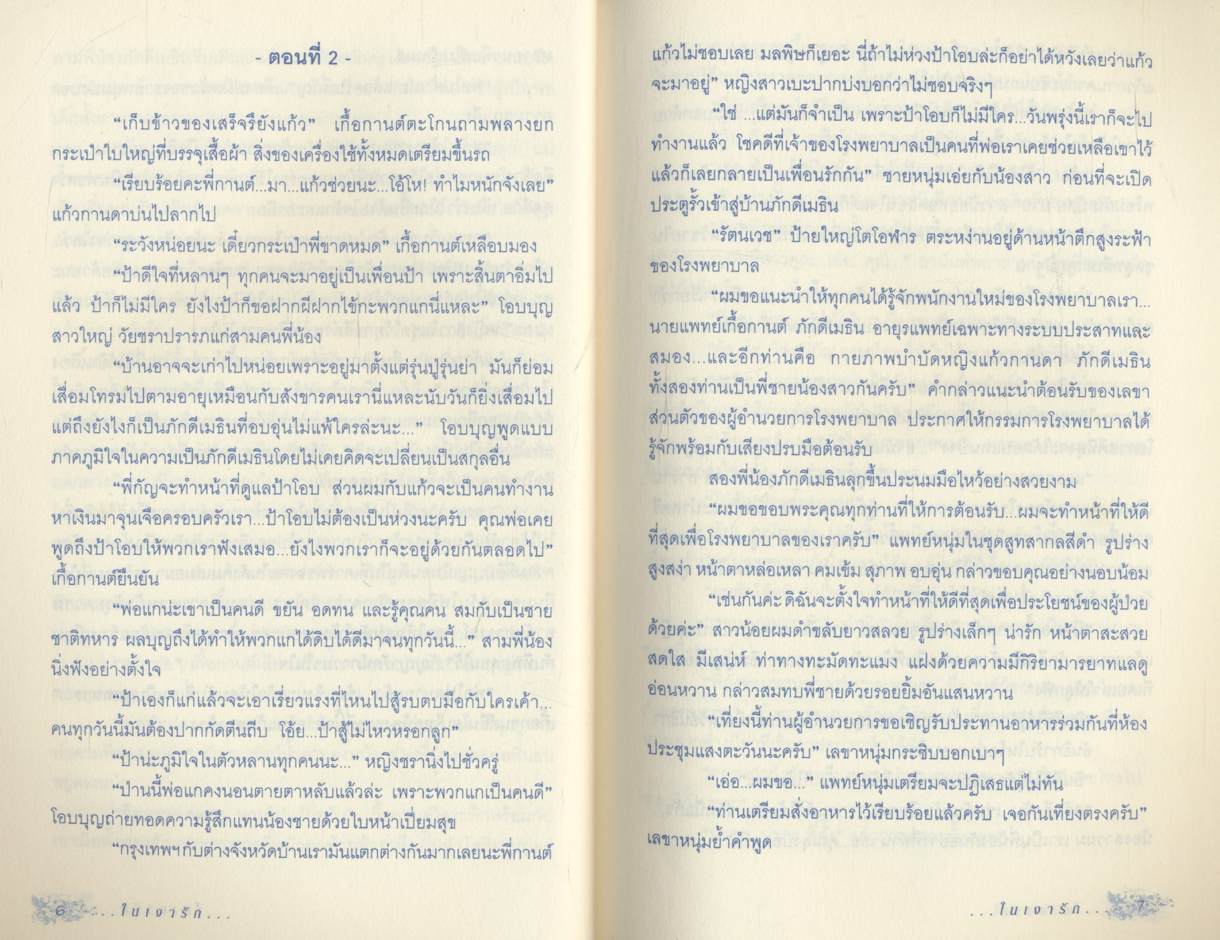 - ตอนที่ 2 -
“เก็บข้าวของเสร็จรึยังแก้ว” เกื้อกานต์ตะโกนถามพลางยก
กระเป๋าใบใหญ่ที่บรรจุเสื้อผ้า สิ่งของเครื่องใช้ทั้งหมดเตรียมขึ้นรถ
“เรียบร้อยคะพี่กานต์...มา...แก้วช่วยนะ...โอ้โห! ทำไมหนักจังเลย”
แก้วกานดาบ่นไปลากไป
“ระวังหน่อยนะ เดี๋ยวกระเป๋าพี่ขาดหมด” เกื้อกานต์เหลือบมอง
“ป้าดีใจที่หลานๆ ทุกคนจะมาอยู่เป็นเพื่อนป้า เพราะสิ้นตาอิ่มไป
แล้ว ป้าก็ไม่มีใคร ยังไงป้าก็ขอฝากผีฝากไข้กะพวกแกนี่แหละ” โอบบุญ
สาวใหญ่ วัยชราปรารภแก่สามคนพี่น้อง
“บ้านอาจจะเก่าไปหน่อยเพราะอยู่มาตั้งแต่รุ่นปู่รุ่นย่า มันก็ย่อม
เสื่อมโทรมไปตามอายุเหมือนกับสังขารคนเรานี่แหละนับวันก็ยิ่งเสื่อมไป
แต่ถึงยังไงก็เป็นภักดีเมธินที่อบอุ่นไม่แพ้ใครล่ะนะ...” โอบบุญพูดแบบ
ภาคภูมิใจในความเป็นภักดีเมธินโดยไม่เคยคิดจะเปลี่ยนเป็นสกุลอื่น
“พี่กัญจะทำหน้าที่ดูแลป้าโอบ ส่วนผมกับแก้วจะเป็นคนทำงาน
หาเงินมาจุนเจือครอบครัวเรา...ป้าโอบไม่ต้องเป็นห่วงนะครับ คุณพ่อเคย
พูดถึงป้าโอบให้พวกเราฟังเสมอ...ยังไงพวกเราก็จะอยู่ด้วยกันตลอดไป”
เกื้อกานต์ยืนยัน
“พ่อแกน่ะเขาเป็นคนดี ขยัน อดทน และรู้คุณคน สมกับเป็นชาย
ชาติทหาร ผลบุญถึงได้ทำให้พวกแกได้ดิบได้ดีมาจนทุกวันนี้...” สามพี่น้อง
นิ่งฟังอย่างตั้งใจ
“ป้าเองก็แก่แล้วจะเอาเรี่ยวแรงที่ไหนไปสู้รบตบมือกับใครเค้า...
คนทุกวันนี้มันต้องปากกัดตีนถีบ โอ้ย...ป้าสู้ไม่ไหวหรอกลูก”
“ป้าน่ะภูมิใจในตัวหลานทุกคนนะ...” หญิงชรานิ่งไปชั่วครู่
“ป่านนี้พ่อแกคงนอนตายตาหลับแล้วล่ะ เพราะพวกแกเป็นคนดี”
โอบบุญถ่ายทอดความรู้สึกแทนน้องชายด้วยใบหน้าเปี่ยมสุข
“กรุงเทพฯกับต่างจังหวัดบ้านเรามันแตกต่างกันมากเลยนะพี่กานต์
6 ...ในเงารัก...
แก้วไม่ชอบเลย มลพิษก็เยอะ นี่ถ้าไม่ห่วงป้าโอบล่ะก็อย่าได้หวังเลยว่าแก้ว
จะมาอยู่” หญิงสาวเบะปากบ่งบอกว่าไม่ชอบจริงๆ
“ใช่ ...แต่มันก็จำเป็น เพราะป้าโอบก็ไม่มีใคร...วันพรุ่งนี้เราก็จะไป
ทำงานแล้ว โชคดีที่เจ้าของโรงพยาบาลเป็นคนที่พ่อเราเคยช่วยเหลือเขาไว้
แล้วก็เลยกลายเป็นเพื่อนรักกัน” ชายหนุ่มเอ่ยกับน้องสาว ก่อนที่จะเปิด
ประตูรั้วเข้าสู่บ้านภักดีเมธิน
“รัตนเวช” ป้ายใหญ่โตโอฬาร ตระหง่านอยู่ด้านหน้าตึกสูงระฟ้า
ของโรงพยาบาล
“ผมขอแนะนำให้ทุกคนได้รู้จักพนักงานใหม่ของโรงพยาบาลเรา...
นายแพทย์เกื้อกานต์ ภักดีเมธิน อายุรแพทย์เฉพาะทางระบบประสาทและ
สมอง...และอีกท่านคือ กายภาพบำบัดหญิงแก้วกานดา ภักดีเมธิน
ทั้งสองท่านเป็นพี่ชายน้องสาวกันครับ” คำกล่าวแนะนำต้อนรับของเลขา
ส่วนตัวของผู้อำนวยการโรงพยาบาล ประกาศให้กรรมการโรงพยาบาลได้
รู้จักพร้อมกับเสียงปรบมือต้อนรับ
สองพี่น้องภักดีเมธินลุกขึ้นประนมมือไหว้อย่างสวยงาม
“ผมขอขอบพระคุณทุกท่านที่ให้การต้อนรับ...ผมจะทำหน้าที่ให้ดี
ที่สุดเพื่อโรงพยาบาลของเราครับ” แพทย์หนุ่มในชุดสูทสากลสีดำ รูปร่าง
สูงสง่า หน้าตาหล่อเหลา คมเข้ม สุภาพ อบอุ่น กล่าวขอบคุณอย่างนอบน้อม
“เช่นกันค่ะ ดิฉันจะตั้งใจทำหน้าที่ให้ดีที่สุดเพื่อประโยชน์ของผู้ป่วย
ด้วยค่ะ” สาวน้อยผมดำขลับยาวสลวย รูปร่างเล็กๆ น่ารัก หน้าตาสะสวย
สดใส มีเสน่ห์ ท่าทางทะมัดทะแมง แฝงด้วยความมีกิริยามารยาทแลดู
อ่อนหวาน กล่าวสมทบพี่ชายด้วยรอยยิ้มอันแสนหวาน
“เที่ยงนี้ท่านผู้อำนวยการขอเชิญรับประทานอาหารร่วมกันที่ห้อง
ประชุมแสงตะวันนะครับ” เลขาหนุ่มกระซิบบอกเบาๆ
“เอ่อ...ผมขอ...” แพทย์หนุ่มเตรียมจะปฏิเสธแต่ไม่ทัน
“ท่านเตรียมสั่งอาหารไว้เรียบร้อยแล้วครับ เจอกันเที่ยงตรงครับ”
เลขาหนุ่มย้ำคำพูด
...ในเงารัก... 7